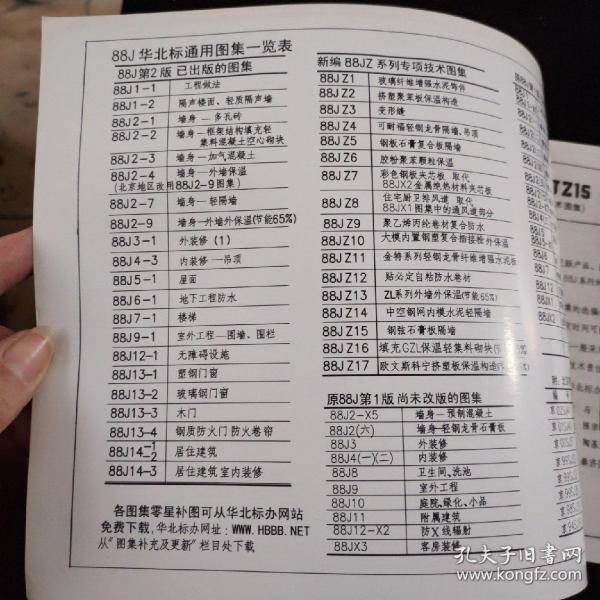 88J 华北标通用图集一览表
88J第2版 已出版的图集
88J1-1 工程做法
88J1-2 隔声楼面、轻质隔声墙
88J2-1 墙身 — 多孔砖
88J2-2 墙身—框架结构填充轻
集料混凝土空心砌块
88J2-3 墙身—加气混凝土
88J2-4 墙身—外墙保温
(北京地区改用88J2-9图集)
88J2-7 墙身—轻隔墙
88J2-9 墙身—外墙外保温(节能65%)
88J3-1 外装修 (1)
88J4-3 内装修 —吊顶
88J5-1 屋面
88J6-1 地下工程防水
88J7-1 楼梯
88J9-1 室外工程—围墙、围栏
88J12-1 无障碍设施
88J13-1 塑钢门窗
88J13-2 玻璃钢门窗
88J13-3 木门
88J13-4 钢质防火门 防火卷帘
88J14-1
-2 居住建筑
88J14-3 居住建筑 室内装修
各图集零星补图可从华北标办网站
免费下载,华北标办网址: WWW.HBBB.NET
从“图集补充及更新”栏目处下载
新编 88JZ 系列专项技术图集
88JZ1 玻璃纤维增强水泥饰件
88JZ2 挤塑聚苯板保温构造
88JZ3 变形缝
88JZ4 可耐福轻钢龙骨隔墙、吊顶
88JZ5 钢板石膏复合板隔墙
88JZ6 胶粉聚苯颗粒保温
88JZ7 彩色钢板夹芯板 取代
88JX2金属绝热材料夹芯板
88JZ8 住宅厨卫排风道 取代
88JX1图集中的通风道部分
88JZ9 聚乙烯丙纶卷材复合防水
88JZ10 大模内置钢塑复合插接栓外保温
88JZ11 金特系列轻钢龙骨纤维增强水泥板
88JZ12 贴必定自粘防水卷材
88JZ13 ZL系列外墙外保温(节能65%)
88JZ14 中空钢网内模水泥轻隔墙
88JZ15 钢弦石膏板隔墙
88JZ16 填充GZL保温轻集料砌块
88JZ17 欧文斯科宁挤塑板保温构造
原88J第1版 尚未改版的图集
88J2-X5 墙身—预制混凝土
88J2(六) 墙身—轻钢龙骨石膏板
88J3 外装修
88J4(一)(二) 内装修
88J8 卫生间、洗池
88J9 室外工程
88J10 庭院、绿化、小品
88J11 附属建筑
88J12-X2 防X线辐射
88JX3 客房装修
TZ15
孔夫子旧书网
www.kongfz.com